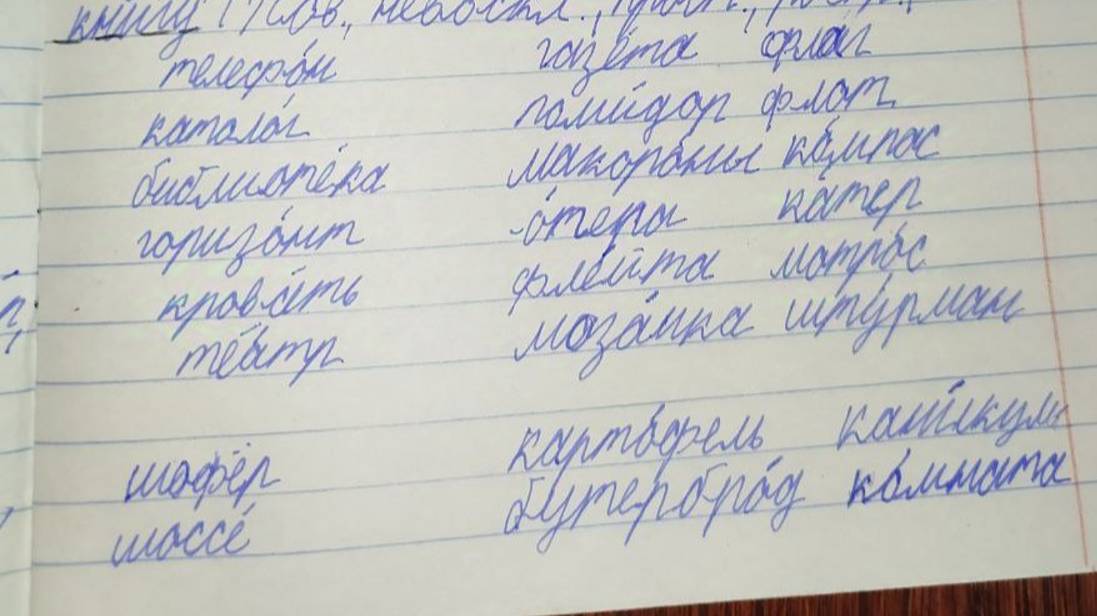 книгу (
телефо́н газе́та флаг
катало́г помидо́р флот
библиоте́ка макоро́ны ко́мпас
горизо́нт о́пера ка́тер
крова́ть фле́йта матро́с
те́атр моза́ика шту́рман
карто́фель
шофёр бутербро́д ко́мната
шоссе́